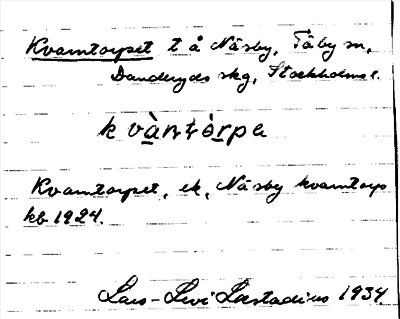 Kvarntorpet t å Näsby, Täby sn,
Danderyds skg, Stockholms l.
k vàntòrpe
Kvarntorpet, ek, Näsby kvarntorp
kb 1924.
Lars-Levi Læstadius 1934